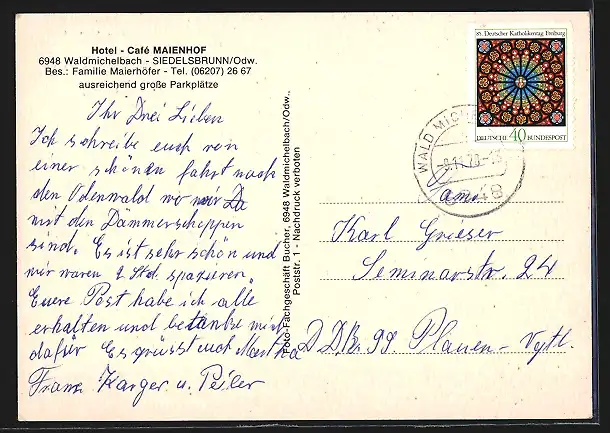 Hotel - Café MAIENHOF
6948 Waldmichelbach - SIEDELSBRUNN/Odw.
Bes.: Familie Maierhöfer - Tel. (06207) 26 67
ausreichend große Parkplätze
Ihr Drei Lieben
Ich schreibe euch von
einer schönen fahrt nach
den Odenwald wo wir Da
mit den Dämmerschoppen
sind. Es ist sehr schön und
wir waren 2 Std. spazieren
Euere Post habe ich alle
erhalten und bedanke mich
dafür Es grüsst euch Martha
Franz Karger u. Peiler
Foto-Fachgeschäft Bucher, 6948 Waldmichelbach/Odw.,
Poststr. 1 - Nachdruck verboten
85. Deutscher Katholikentag Freiburg
DEUTSCHE 40 BUNDESPOST
WALD MICH
-8.11.78-
6948
Fam.
Karl Grieser
Seminarstr. 24
DDR. 99 Plauen - Vgtl.